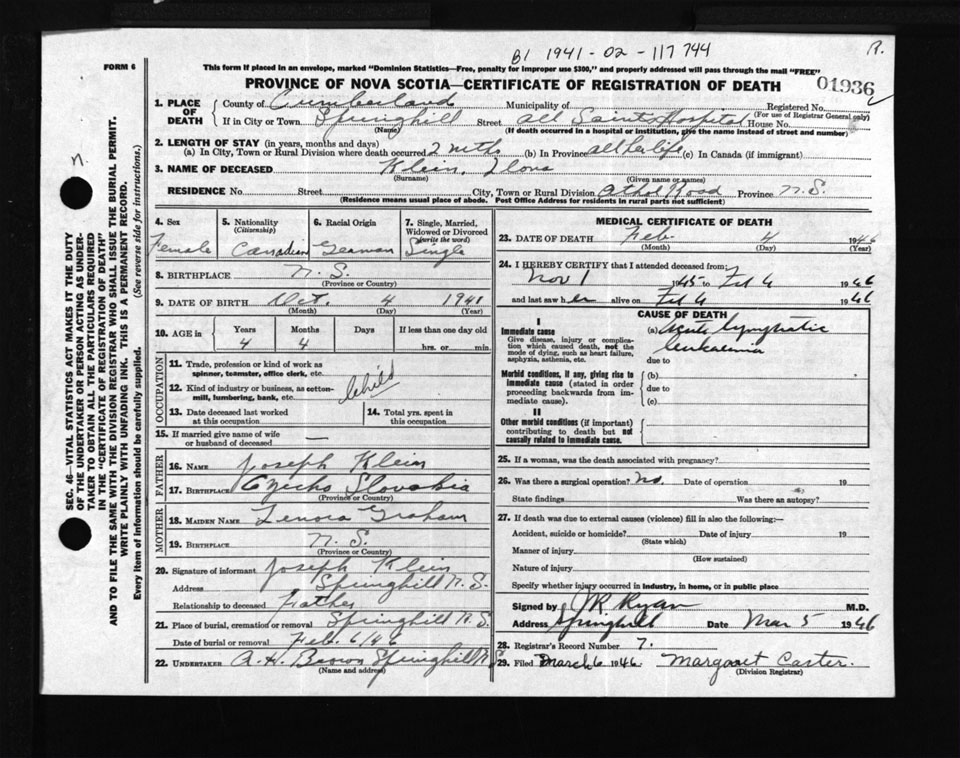 B1 1941-02-117744
R.
FORM 6
This form If placed in an envelope, marked "Dominion Statistics—Free, penalty for improper use $300," and properly addressed will pass through the mail "FREE"
PROVINCE OF NOVA SCOTIA—CERTIFICATE OF REGISTRATION OF DEATH
01936
1. PLACE OF DEATH
County of Cumberland Municipality of Registered No.
(For use of Registrar General only)
If in City or Town Springhill Street All Saints Hospital House No.
(Name) (If death occurred in a hospital or institution, give the name instead of street and number)
2. LENGTH OF STAY (in years, months and days)
(a) In City, Town or Rural Division where death occurred 2 mths (b) In Province all her life (c) In Canada (if immigrant)
3. NAME OF DECEASED Klein, Ilona
(Surname) (Given name or names)
RESIDENCE No. Street City, Town or Rural Division Athol Road Province N.S.
(Residence means usual place of abode. Post Office Address for residents in rural parts not sufficient)
4. Sex 5. Nationality (Citizenship) 6. Racial Origin 7. Single, Married, Widowed or Divorced (write the word)
Female Canadian German Single
8. BIRTHPLACE N.S.
(Province or Country)
9. DATE OF BIRTH Oct. 4 1941
(Month) (Day) (Year)
10. AGE in Years Months Days If less than one day old
4 4 hrs. or min.
OCCUPATION
11. Trade, profession or kind of work as spinner, teamster, office clerk, etc.
12. Kind of industry or business, as cotton-mill, lumbering, bank, etc. Child
13. Date deceased last worked at this occupation 14. Total yrs. spent in this occupation
15. If married give name of wife or husband of deceased —
FATHER
16. NAME Joseph Klein
17. BIRTHPLACE Czecho Slovakia
(Province or Country)
MOTHER
18. MAIDEN NAME Lenora Graham
19. BIRTHPLACE N.S.
(Province or Country)
20. Signature of informant Joseph Klein
Address Springhill N.S.
Relationship to deceased Father
21. Place of burial, cremation or removal Springhill N.S.
Date of burial or removal Feb. 6/46
22. UNDERTAKER A.H. Brown Springhill N.S.
(Name and address)
MEDICAL CERTIFICATE OF DEATH
23. DATE OF DEATH Feb. 4 1946
(Month) (Day) (Year)
24. I HEREBY CERTIFY that I attended deceased from
Nov 1 1945 to Feb 4 1946
and last saw her alive on Feb 4 1946
CAUSE OF DEATH
I
Immediate cause
Give disease, injury or complication which caused death, not the mode of dying, such as heart failure, asphyxia, asthenia, etc.
(a) Acute lymphatic
leukaemia
due to
Morbid conditions, if any, giving rise to immediate cause (stated in order proceeding backwards from immediate cause).
(b)
due to
(c)
II
Other morbid conditions (if important) contributing to death but not causally related to immediate cause.
25. If a woman, was the death associated with pregnancy?
26. Was there a surgical operation? No. Date of operation 19
State findings Was there an autopsy?
27. If death was due to external causes (violence) fill in also the following:—
Accident, suicide or homicide? Date of injury 19
(State which)
Manner of injury
(How sustained)
Nature of injury
Specify whether injury occurred in industry, in home, or in public place
Signed by J R Ryan M.D.
Address Springhill Date Mar 5 1946
28. Registrar's Record Number 7.
29. Filed March 6 1946. Margaret Carter.
(Division Registrar)
n.
SEC. 46—VITAL STATISTICS ACT MAKES IT THE DUTY
OF THE UNDERTAKER OR PERSON ACTING AS UNDER-
TAKER TO OBTAIN ALL THE PARTICULARS REQUIRED
IN THE "CERTIFICATE OF REGISTRATION OF DEATH"
AND TO FILE THE SAME WITH THE DIVISION REGISTRAR WHO SHALL ISSUE THE BURIAL PERMIT.
WRITE PLAINLY WITH UNFADING INK. THIS IS A PERMANENT RECORD.
Every item of information should be carefully supplied. (See reverse side for instructions.)